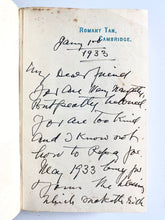 ROMANY TAN,
CAMBRIDGE.
Jany 1st
1933
My Dear friend
You are very naughty
but greatly beloved
You are too kind
and I know not
how to Repay you
May 1933 bring for
you the blessing
which maketh Rich